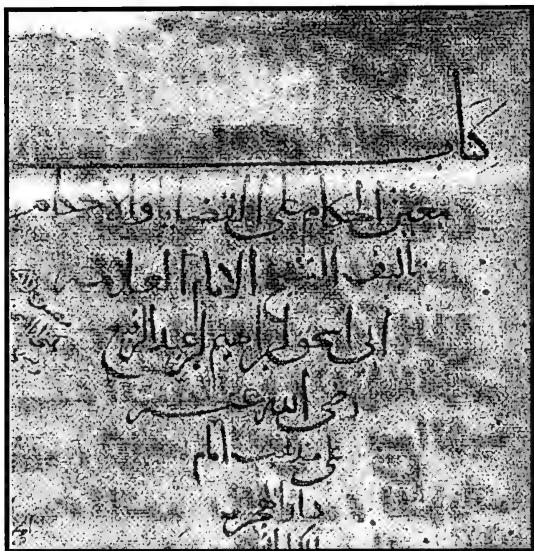 كتاب
معين الحكام على القضايا والاحكام
تاليف الشيخ الامام العلامه
ابى اسحق ابراهيم بن عبد الرفيع
رضى الله عنه
على مذهب امام
دار الهجرة